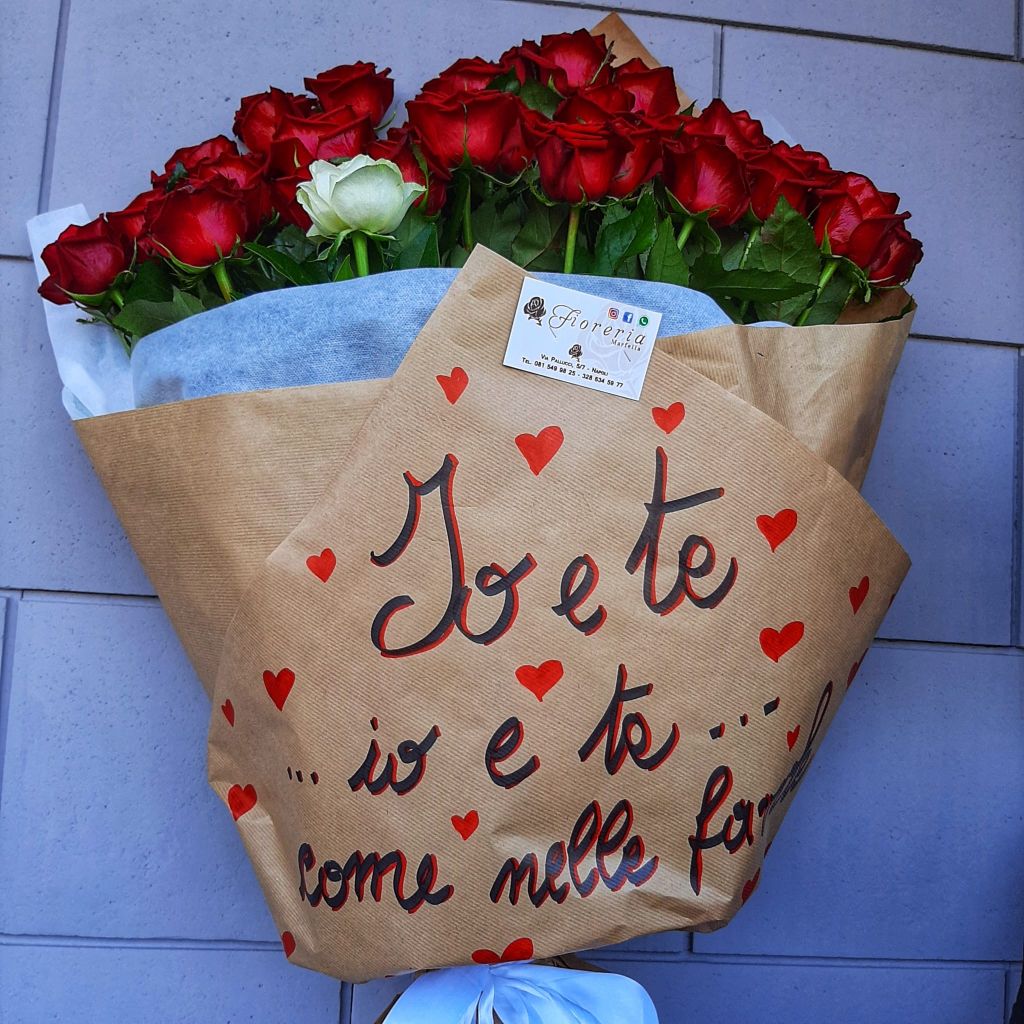 Fioreria
Marfella
Via Pallucci, 5/7 - Napoli
Tel. 081 549 98 25 - 328 634 59 77
Io e te
... io e te ...
come nelle